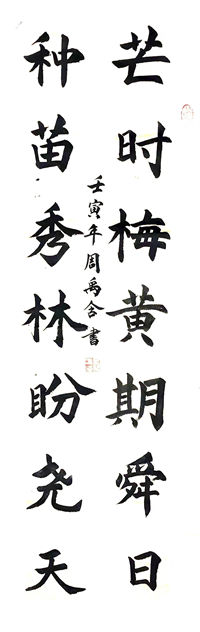 芒时梅黄期舜日
种苗秀林盼尧天
壬寅年周禹含书